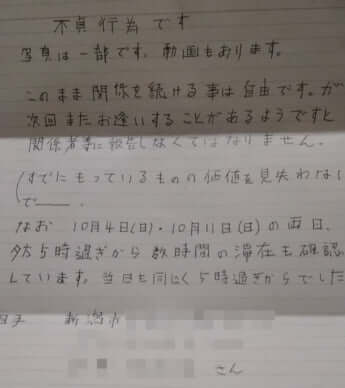 不貞行為です
写真は一部です。動画もあります。
このまま関係を続ける事は自由です。が
次回またお逢いすることがあるようですと
関係者に報告しなくてはなりません。
(すでにもっているものの価値を見失わない
で――.
なお 10月4日(日)・10月11日(日)の両日、
夕方5時過ぎから数時間の滞在も確認
しています。当日も同じく5時過ぎからでした
新潟市
さん